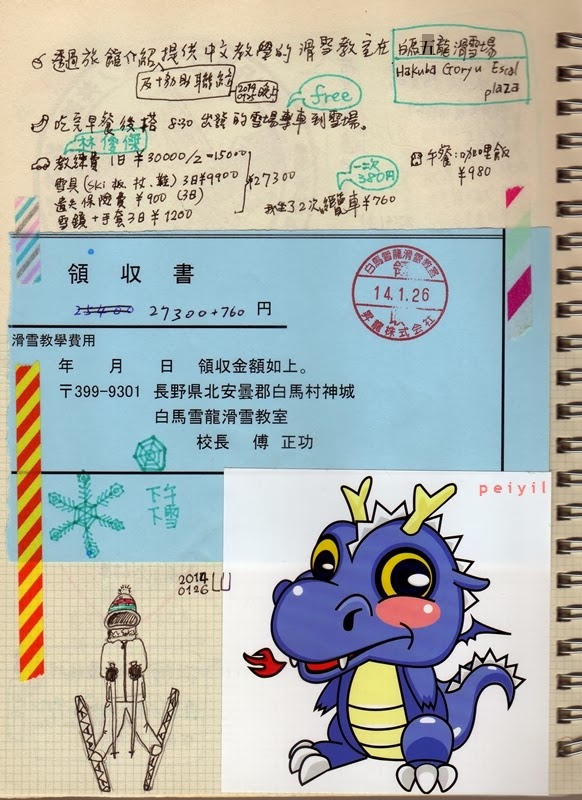 透過旅館介紹提供中文教學的滑雪教室在
白馬五龍滑雪場
Hakuba Goryu Escal
plaza
及協助聯絡
free
吃完早餐後搭 8:30 出發的雪場專車到雪場。
林俊傑
教練費1日¥30000/2=15000
雪具(ski板.杖.鞋)3日¥9900
遺失保險費 ¥900 (3日)
雪鏡+手套3日¥1200
¥27300
一次
380円
我坐了2次纜車¥760
午餐:咖哩飯
¥980
領収書
25400 27300+760 円
白馬雪龍滑雪教室
14.1.26
昇龍株式会社
滑雪教學費用
年 月 日 領収金額如上。
〒399-9301 長野県北安曇郡白馬村神城
白馬雪龍滑雪教室
校長 傅 正功
午雪
下下
peiyil
2014
0126